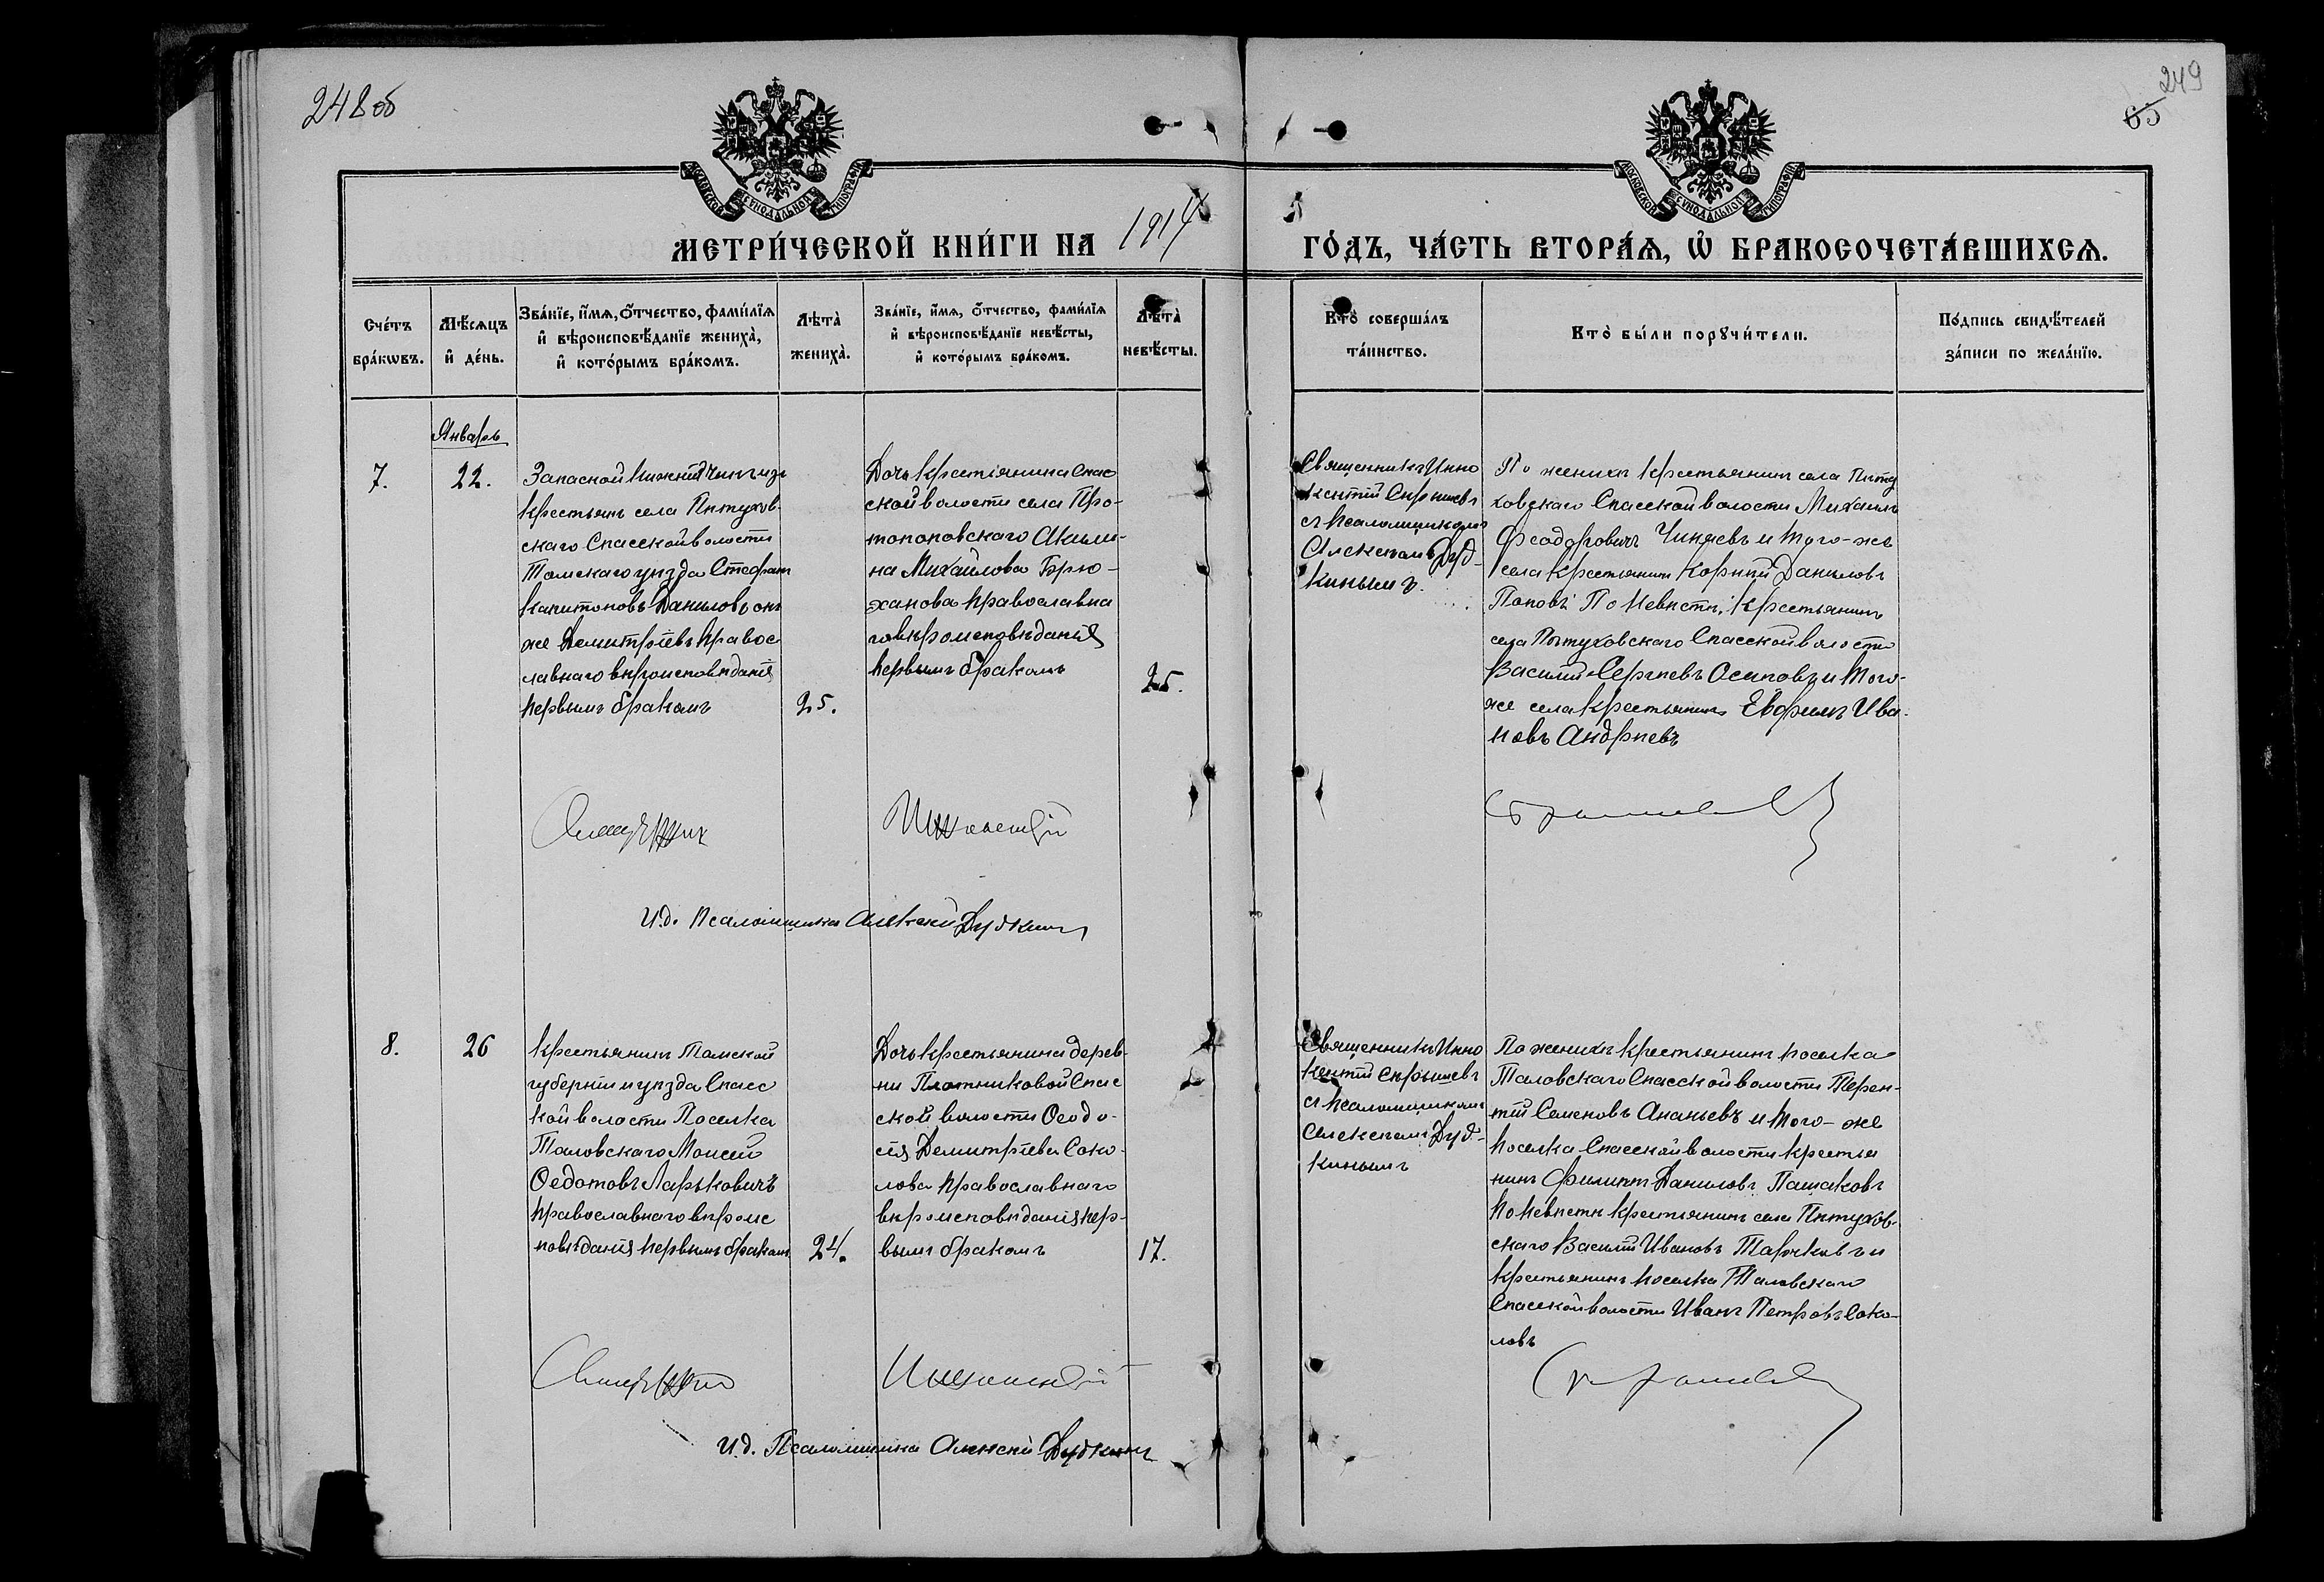 248 об
249
65
МОСКОВСКОЙ СѴНОДАЛЬНОЙ ТИПОГРАФІИ
МОСКОВСКОЙ СѴНОДАЛЬНОЙ ТИПОГРАФІИ
МЕТРИ́ЧЕСКОЙ КНИ́ГИ НА 1914 ГО́ДЪ, ЧА́СТЬ ВТОРА́Ѧ, Ѡ БРАКОСОЧЕТА́ВШИХСѦ.
Сче́тъ
бра́кѡвъ.
Мѣ́сяцъ
и҆ де́нь.
Зва́нїе, и҆́мѧ, ѻ҆́тчество, фами́лїѧ
и҆ вѣроисповѣ́данїе жениха̀,
и҆ кото́рымъ бра́комъ.
Лѣта̀
жениха̀.
Зва́нїе, и҆́мѧ, ѻ҆́тчество, фами́лїѧ
и҆ вѣроисповѣ́данїе невѣ́сты,
и҆ кото́рымъ бра́комъ.
Лѣта̀
невѣ́сты.
Кто̀ соверша́лъ
та́инство.
Кто̀ бы́ли порꙋчи́тели.
По́дпись свидѣ́телей
за́писи по жела́нїю.
Январь
7.
22.
Запасной Нижній чинъ изъ
крестьянъ села Пѣтухов-
скаго Спасской волости
Томскаго уѣзда Стефанъ
Капитоновъ Даниловъ онъ
же Демитріевъ Правос
лавнаго вѣроисповѣданія
первымъ бракомъ
25.
Дочь крестьянина Спас
ской волости села Про-
топоповскаго Акили-
на Михайлова Брю-
ханова православна
го вѣроисповѣданія
первымъ бракомъ
25.
Священникъ Инно
кентій Сирышевъ
съ псаломщикомъ
Алексѣемъ Дуд-
кинымъ.
По женихѣ крестьянинъ села Пѣту
ховскаго Спасской волости Михаилъ
Феодоровичъ Чиняевъ и того-же
села крестьянинъ Корнилій Даниловъ
Поповъ По Невѣстѣ: Крестьянинъ
села Пѣтуховскаго Спасской волости
Василій Сергѣевъ Осиповъ и того-
же села крестьянинъ Ефимъ Ива-
новъ Андрѣевъ
Священникъ Иннокентій
И.д. Псаломщика Алексѣй Дудкинъ
8.
26
Крестьянинъ Томской
губерніи и уѣзда Спасс
кой волости Поселка
Таловскаго Моисей
Ѳедотовъ Ларьковичъ
православнаго вѣроис
повѣданія первымъ бракомъ
24.
Дочь крестьянина дерев-
ни Плотниковой Спас
ской волости Ѳеодо-
сія Демитріева Соко-
лова Православнаго
вѣроисповѣданія пер-
вымъ бракомъ
17.
Священникъ Инно
кентій Сирышевъ
съ псаломщикомъ
Алексѣемъ Дуд-
кинымъ
По женихѣ крестьянинъ поселка
Таловскаго Спасской волости Терен-
тій Семеновъ Ананьевъ и того-же
поселка Спасской волости крестья
нинъ Филиппъ Даниловъ Пашаковъ
По Невѣстѣ крестьянинъ села Пѣтухов-
скаго Василій Ивановъ Тарчковъ и
крестьянинъ поселка Таловскаго
Спасской волости Иванъ Петровъ Соко-
ловъ
Священникъ Иннокентій
И.д. Псаломщика Алексѣй Дудкинъ